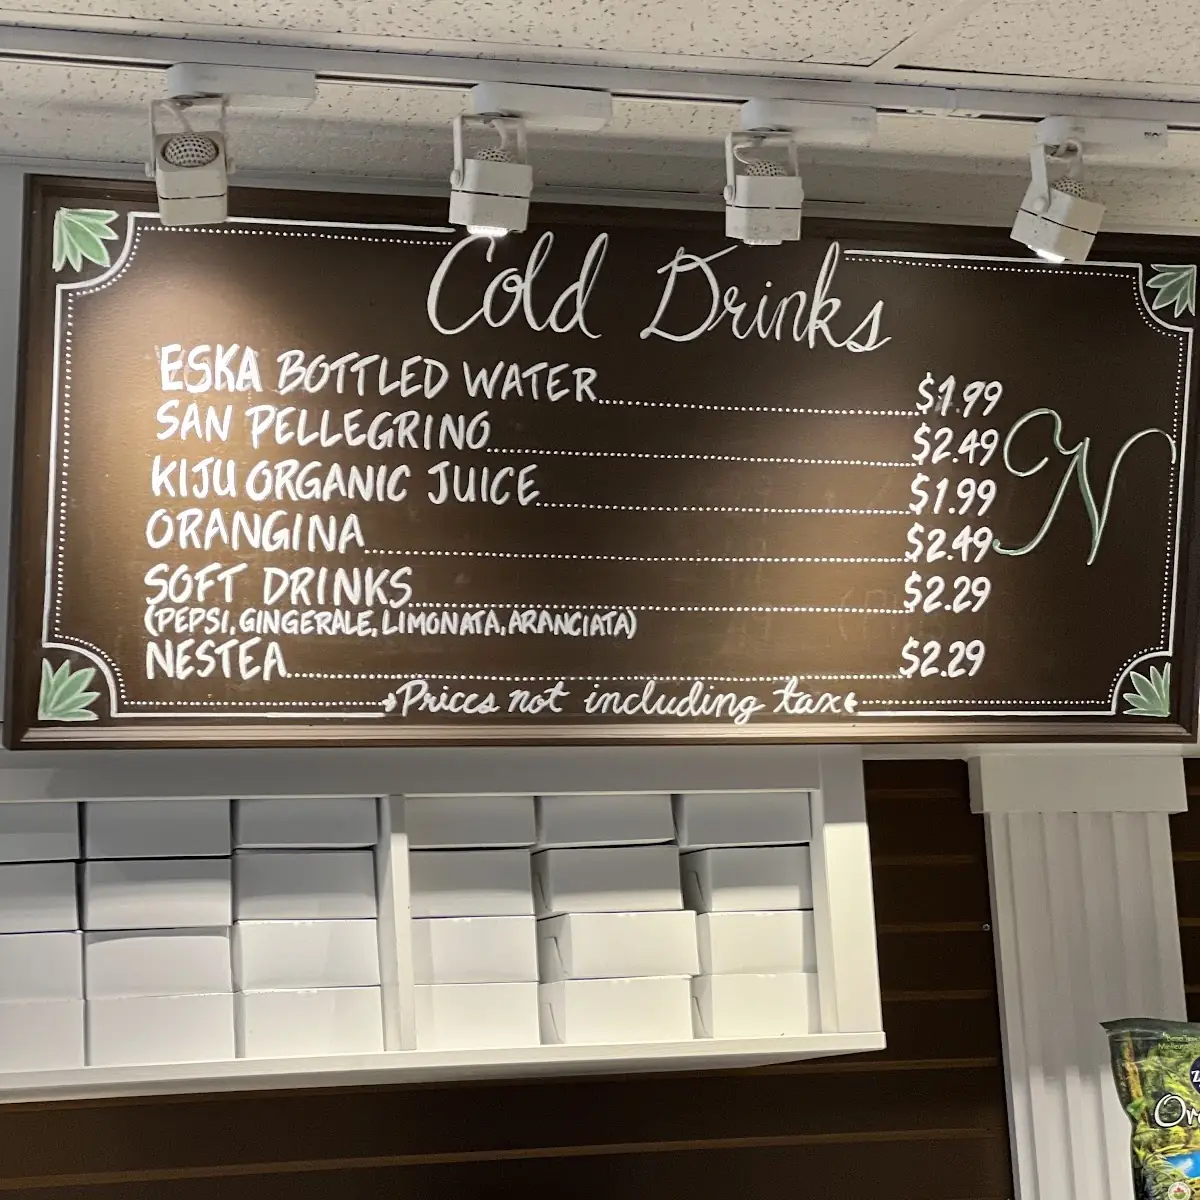 Cold Drinks
ESKA BOTTLED WATER $1.99
SAN PELLEGRINO $2.49
KIJU ORGANIC JUICE $1.99
ORANGINA $2.49
SOFT DRINKS $2.29
(PEPSI, GINGERALE, LIMONATA, ARANCIATA)
NESTEA $2.29
Prices not including tax
N